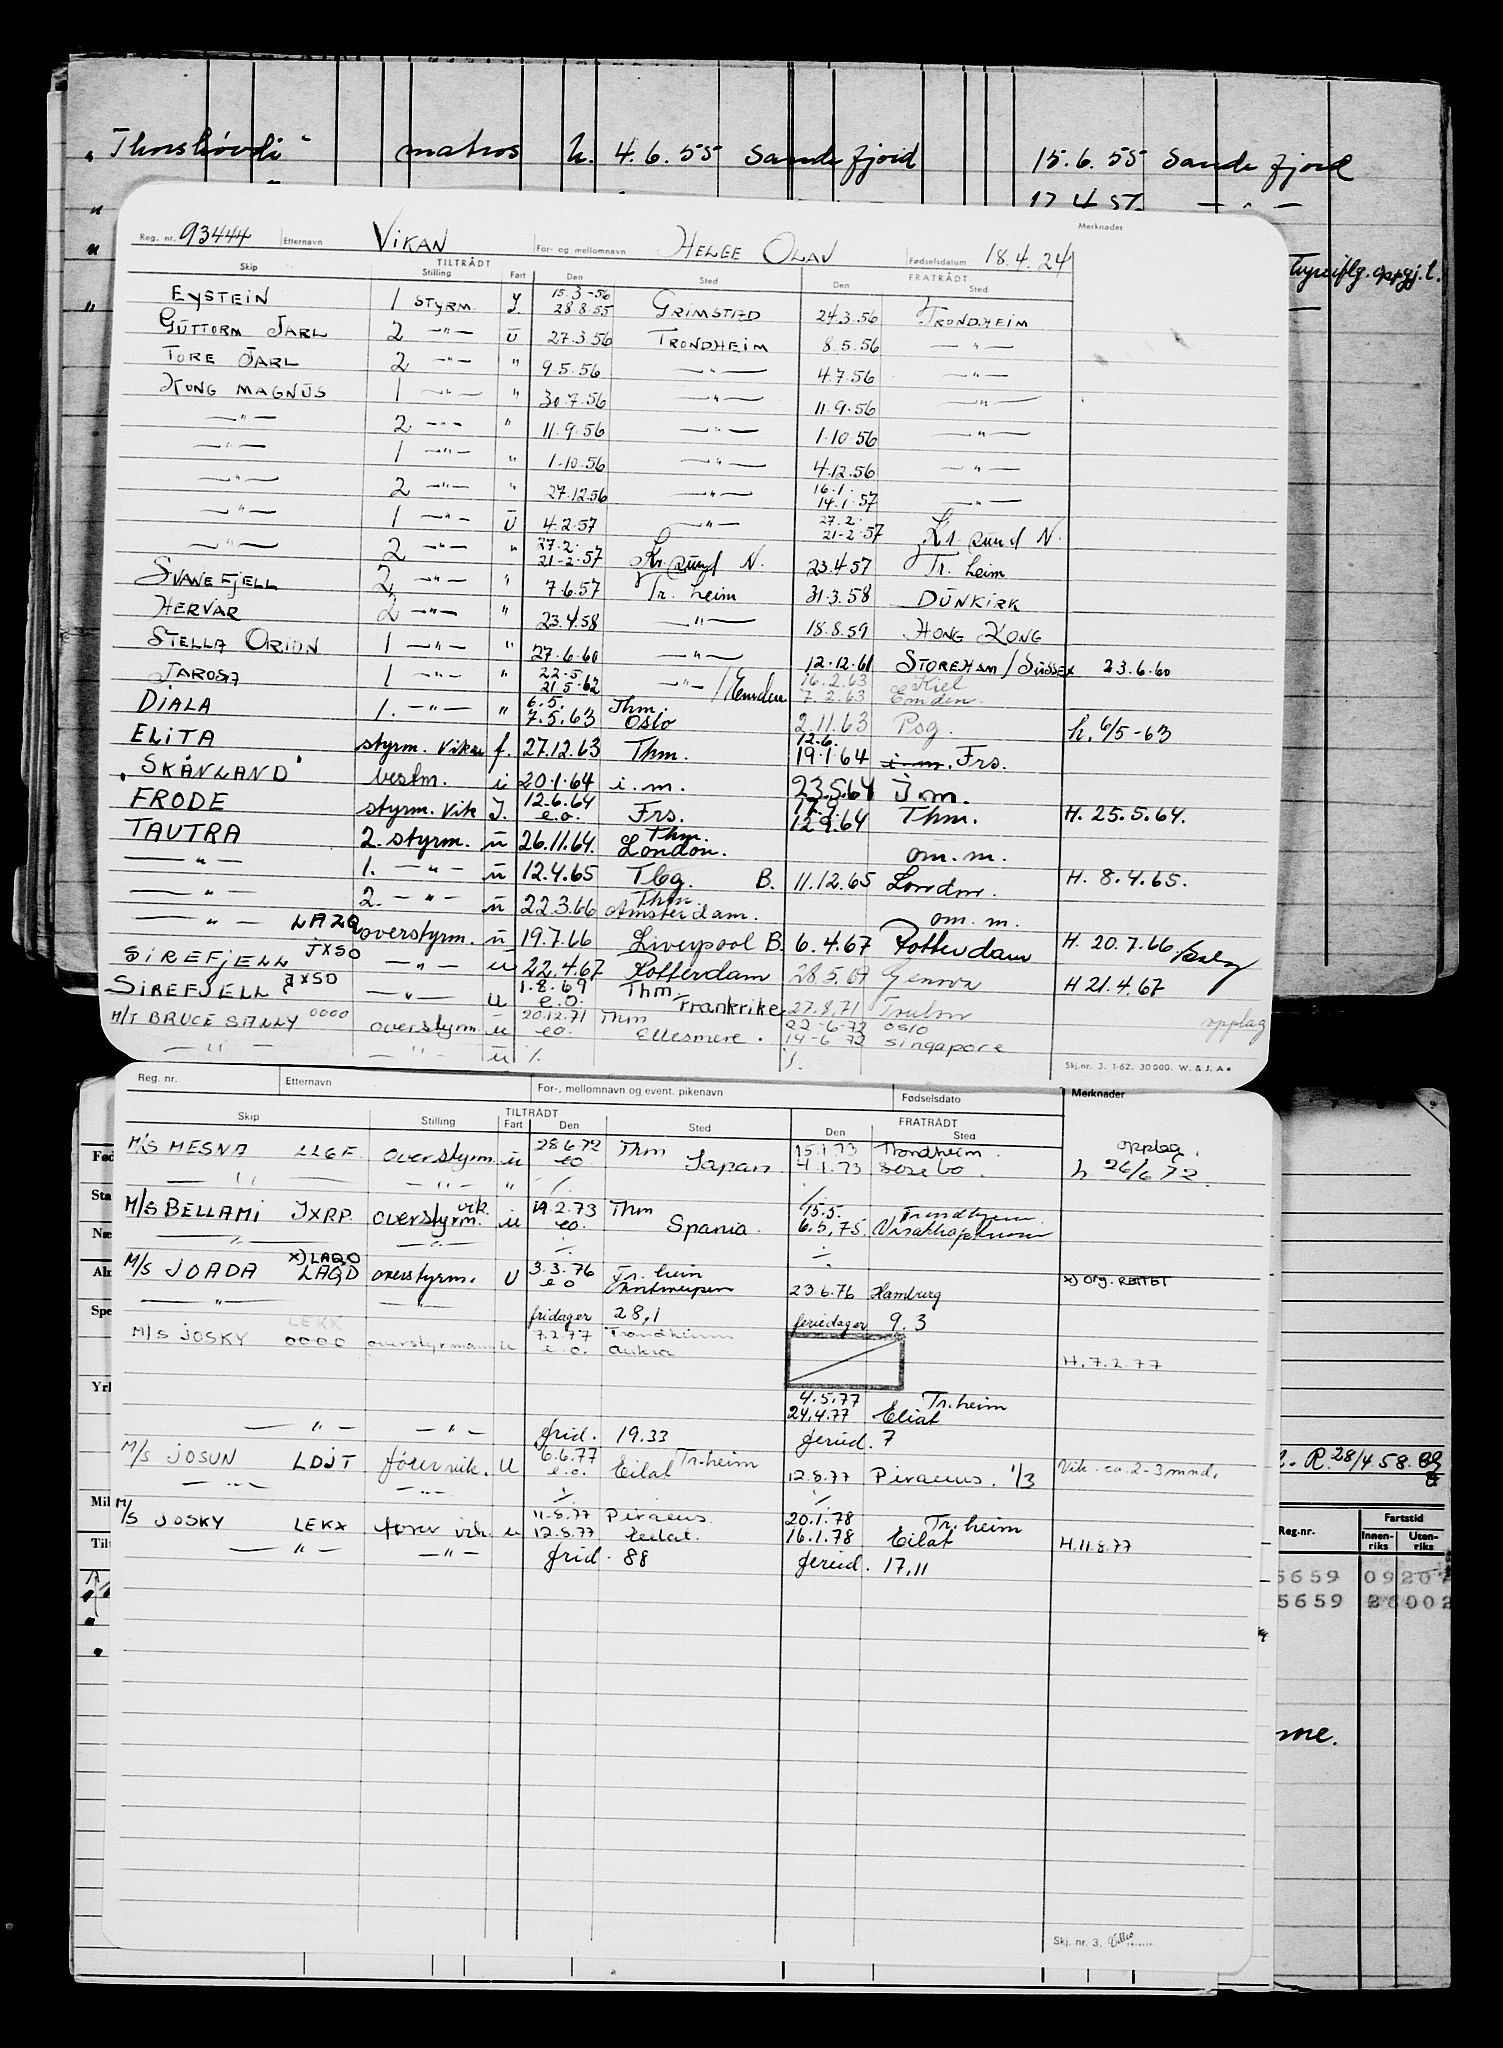 " Thorshövdi " matros u. 4.6.55 Sandefjord 15.6.55 Sandefjord
" 17.4.57. — " —
Reg. nr. 93444 Etternavn VIKAN For- og mellomnavn HELGE OLAV Fødselsdatum 18.4.24 Merknader
TILTRÅDT FRATRÅDT
Skip Stilling Fart Den Sted Den Sted
15.3-56
EYSTEIN 1 STYRM. I. 28.8.55 GRIMSTAD 24.3.56 TRONDHEIM
GUTTORM JARL 2 — " — U 27.3.56 TRONDHEIM 8.5.56 — " —
TORE JARL 2 — " — " 9.5.56 — " — 4.7.56 — " —
KONG MAGNUS 1 — " — " 30.7.56 — " — 11.9.56 — " —
— " — 2 — " — " 11.9.56 — " — 1.10.56 — " —
— " — 1 — " — " 1.10.56 — " — 4.12.56 — " —
16.1.
— " — 2 — " — " 27.12.56 — " — 14.1.57 — " —
27.2.
— " — 1 — " — U 4.2.57 — " — 21-2-57 Kr. sund N.
27.2.
— " — 2 — " — " 21-2-57 Kr. sund N. 23.4.57 Tr. heim
SVANEFJELL 2 — " — " 7.6.57 Tr. heim 31.3.58 DUNKIRK
HERVAR 2 — " — " 23.4.58 — " — 18.8.59 HONG KONG
STELLA ORION 1 — " — " 27.6.60 — " — 12.12.61 STOREHAM / SUSSEX 23.6.60
22-5. 16.2.63 Kiel
JAROSA 1 — " — " 21.5.62 — " — / Emden 7.2.63 Emden.
6.5. Thm.
DIALA 1. — " — " 7.5.63 Oslo 2.11.63 Psg. h. 6/5-63
12.6.
ELITA styrm. Vikar f. 27.12.63 Thm. 19.1.64 i.m. Frs.
"SKÅNLAND" bestm. u 20.1.64 i.m. 23.5.64 I.m.
12.6.64 17.9.
FRODE styrm. Vik I. e.o. Frs. 12.9.64 Thm. H. 25.5.64.
Thm.
TAUTRA 2. styrm. u 26.11.64. London. om. m.
— " — 1. — " — u 12.4.65 Tbg. B. 11.12.65 London. H. 8.4.65.
Thm
— " — 2. — " — u 22.3.66 Amsterdam. om. m.
— " — LAZQ overstyrm. u 19.7.66 Liverpool B. 6.4.67 Rotterdam H. 20.7.66
SIREFJELL JXSO — " — u 22.4.67 Rotterdam 28.5.69 Genova H 21.4.67
1.8.69 Thm
SIREFJELL JXSO — " — u e.o. Frankrike 27.8.71 Toulon
20.12.71 Thm 22-6-72 OSLO opplag
M/T BRUCE SALLY 0000 overstyrm. u eo. Ellesmere. 14-6 72 Singapore
— " — — " — u ./. ./.
Skj.nr. 3. 1-62. 30 000. W. & J. A.
Reg. nr. Etternavn For-, mellomnavn og event. pikenavn Fødselsdato Merknader
TILTRÅDT FRATRÅDT
Skip Stilling Fart Den Sted Den Sted
28.6.72 Thm 15.1.73 Trondheim. opplag.
M/S MESNA LLGF overstyrm. u eo. Japan 4.1.73 h 26/6 72.
— " — — " — " ./. ./.
vik. 19.2.73 Thm 15.5. Trondheim
M/S BELLAMI JXRP. overstyrm. u eo. Spania. 6.5.75.
— " — — " — ./. ./.
x) LAQO 3.3.76 Tr. heim
M/S JOADA LAQD overstyrm. U eo Antwerpen 23.6.76 Hamburg x) org. REITET
— " — — " — fridager 28,1 feriedager 9.3
LEKX 7.2.77 Trondheim
M/S JOSKY 0000 overstyrmann u e.o. Aukra H. 7.2.77
4.5.77 Tr.heim
24.4.77 Eliat
— " — — " — frid. 19.33 feried. 7
6.6.77 Tr.heim
M/S JOSUN LDJT fører vik. U e.o. Eilat 12.8.77 Piraeus. 1/3 Vik. ca. 2-3 mnd.
— " — — " — ./. ./.
11.8.77 Piraeus. 20.1.78 Tr.heim
M/S JOSKY LEKX fører vik. u 12.8.77 Eilat. 16.1.78 Eilat H. 11.8.77
— " — — " — frid. 88 feried. 17,11
R 28/4 58.
Fartstid
Reg.nr. Innen-riks Uten-riks
5659 09207
5659 26002
Skj. nr. 3.